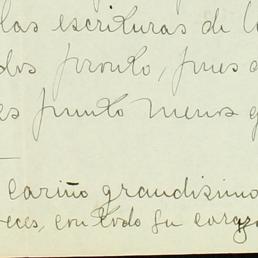 las escrituras de l
dos pronto, pues
es punto menos q
cariño grandísimo
eces, con todo su coraz